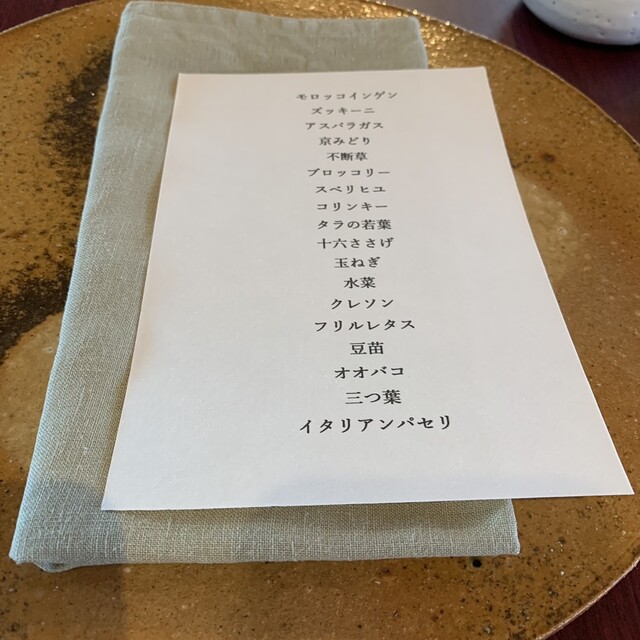 モロッコインゲン
ズッキーニ
アスパラガス
京みどり
不断草
ブロッコリー
スベリヒユ
コリンキー
タラの若葉
十六ささげ
玉ねぎ
水菜
クレソン
フリルレタス
豆苗
オオバコ
三つ葉
イタリアンパセリ